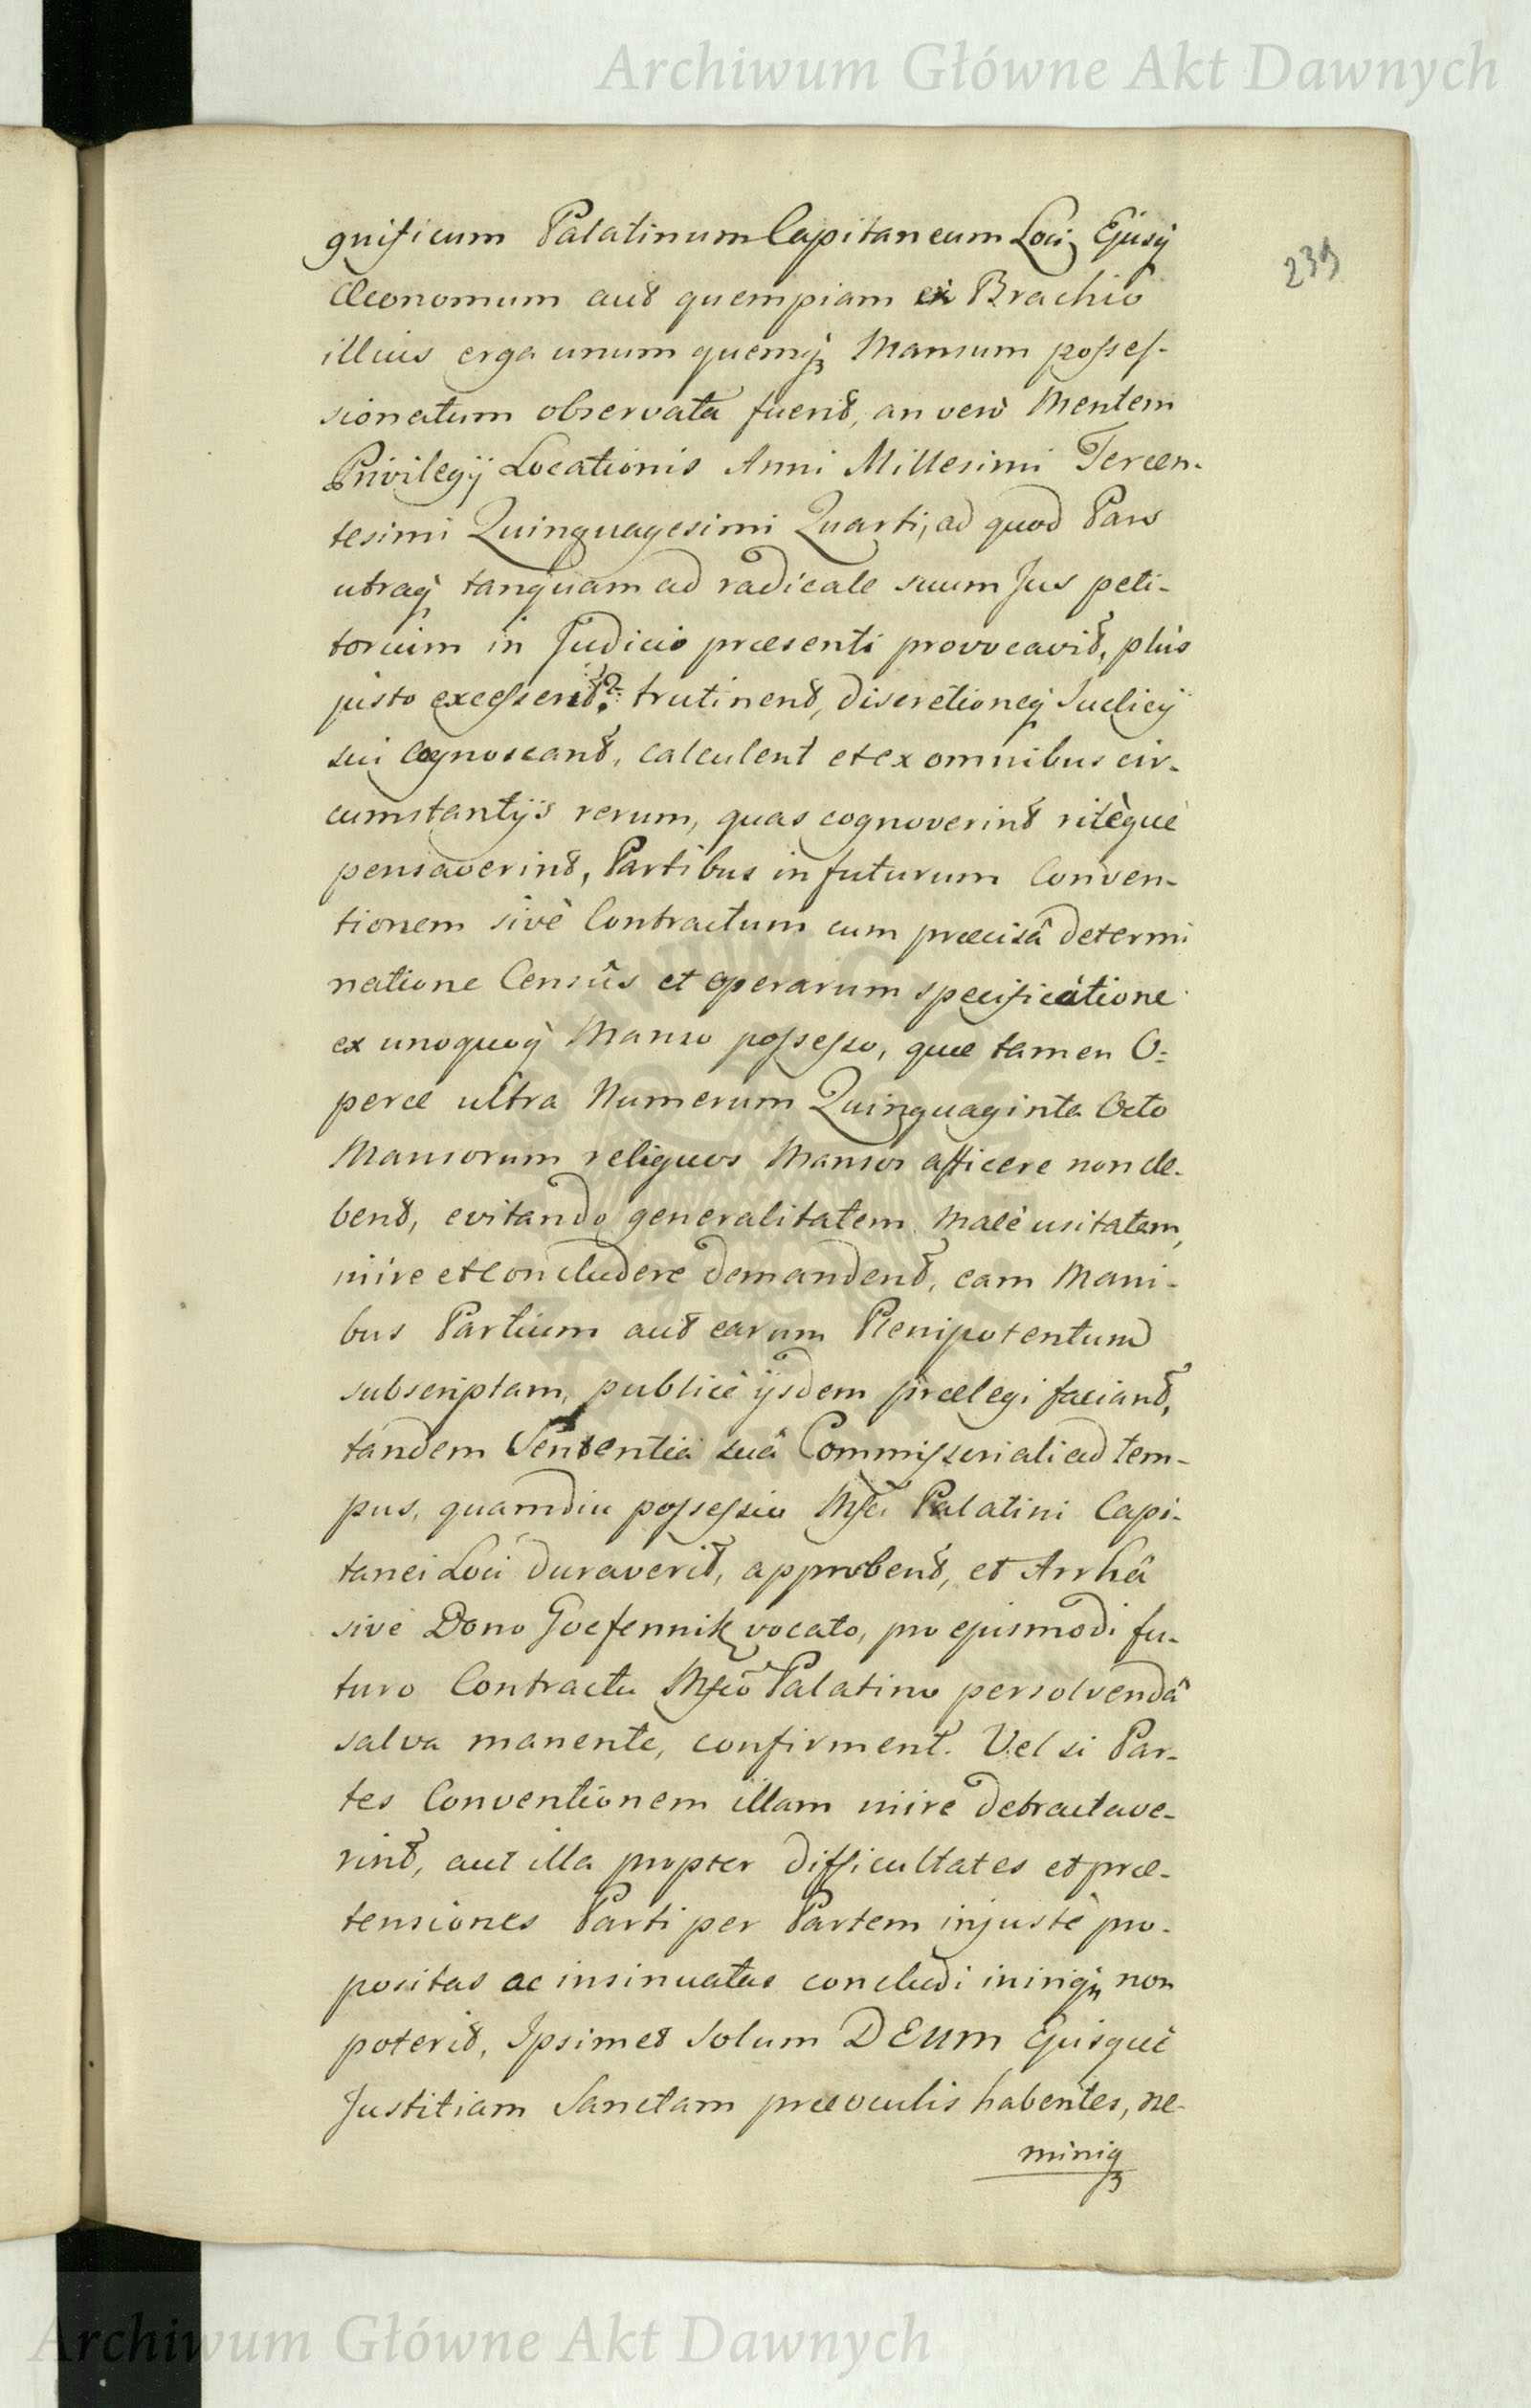 Archiwum Główne Akt Dawnych
239
gnificum Palatinum Capitaneum Loci Ejusq
Œconomum aut quempiam ex Brachio
illius erga unum quemq Mansum posses-
sionatum observata fuerit, an verò Mentem
Privilegij Locationis Anni Millesimi Tercen-
tesimi Quinquagesimi Quarti, ad quod Pars
utraq tanquam ad radicale suum Jus peti-
torium in Judicio præsenti provocavit, plus
justo excesserit? trutinent, discretioneq Judicij
sui cognoscant, calculent et ex omnibus cir-
cumstantijs rerum, quas cognoverint ritèque
pensaverint, Partibus in futurum Conven-
tionem sivè Contractum cum præcisâ determi
natione Censûs et operarum specificatione
ex unoquoq Manso possesso, quæ tamen O=
peræ ultra Numerum Quinquaginta Octo
Mansorum reliquos Mansos afficere non de-
bent, evitando generalitatem malè usitatam,
inire et concludere demandent, eam Mani-
bus Partium aut earum Plenipotentum
subscriptam, publicè ijsdem prælegi faciant,
tandem Sententiâ suâ Commissoriali ad tem-
pus, quamdiu possessio Mfci Palatini Capi-
tanei Loci duraverit, approbent, et Arrhâ
sivè Dono Goefennik vocato, pro ejusmodi fu-
turo Contractu Mfcō Palatino persolvendâ
salva manente, confirment. Vel si Par-
tes Conventionem illam inire detractave-
rint, aut illa propter difficultates et præ-
tensiones Parti per Partem injustè pro-
positas ac insinuatas concludi iniriq non
poterit, Ipsimet solum DEUM Ejusquè
Justitiam Sanctam præ oculis habentes, ne-
miniq
Archiwum Główne Akt Dawnych